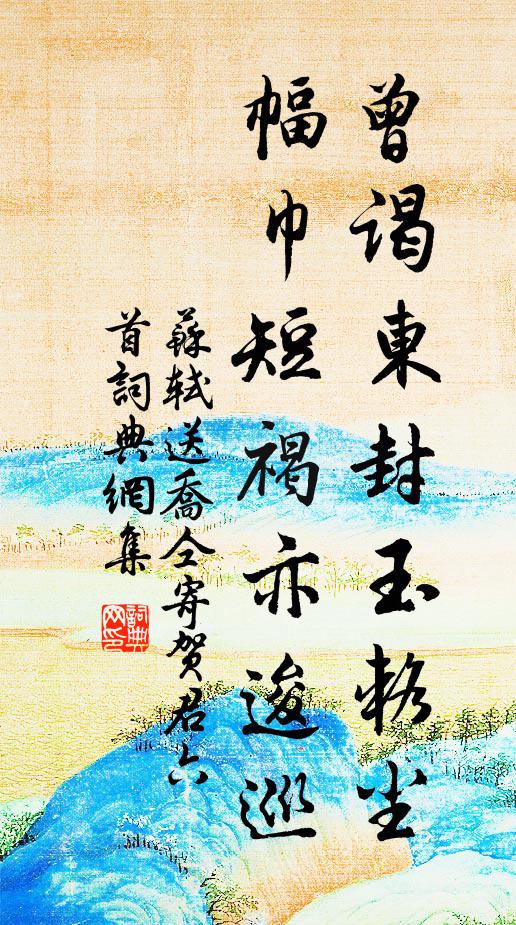 曾謁東封玉輅尘
幅巾短褐亦逡巡
蘇軾送喬仝寄賀君六
首詞典網集
詞典网印